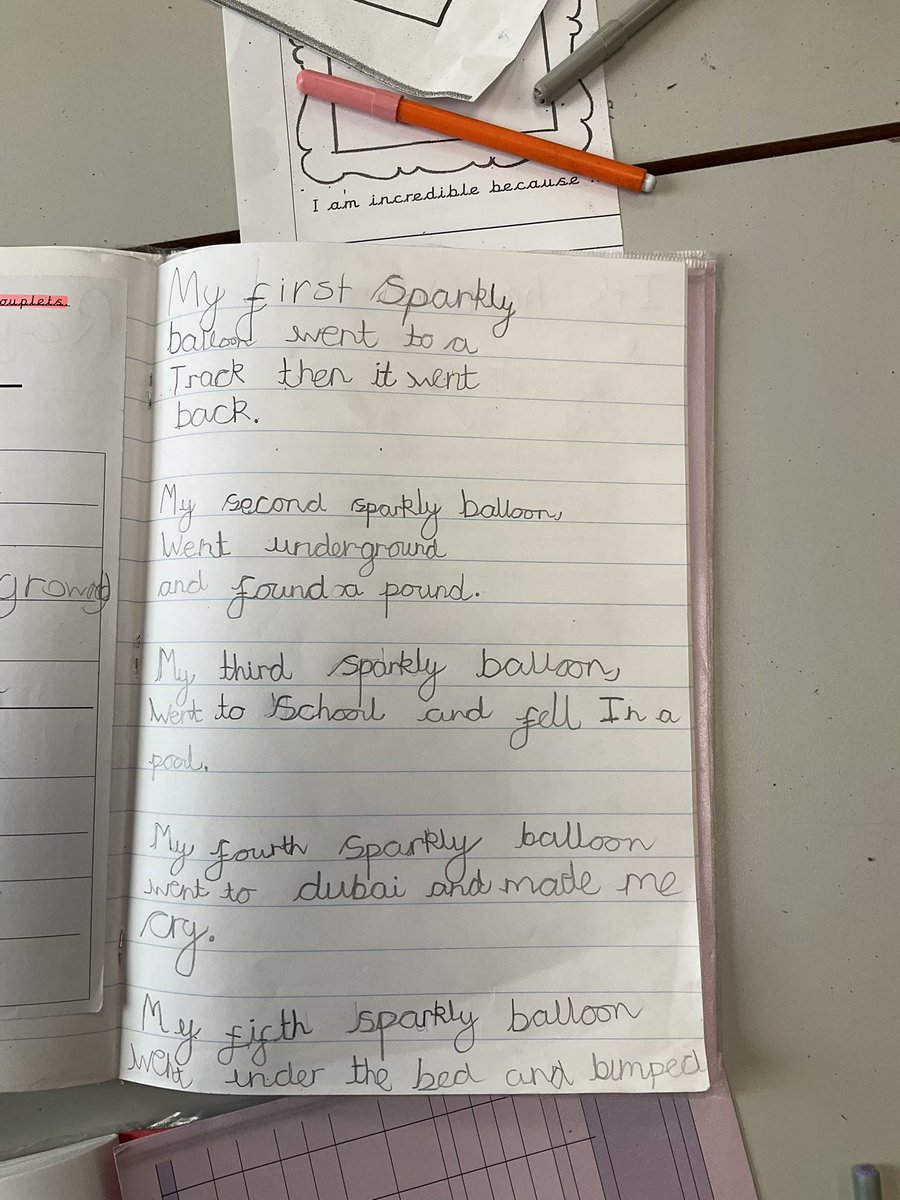 I am incredible because ..
ouplets.
growing
My first Sparkly
balloon went to a
Track then it went
back.
My second sparkly balloon,
Went underground
and found a pound.
My third sparkly balloon,
Went to School and fell In a
pool.
My fourth sparkly balloon
went to dubai and made me
cry.
My fifth sparkly balloon
went under the bed and bumped